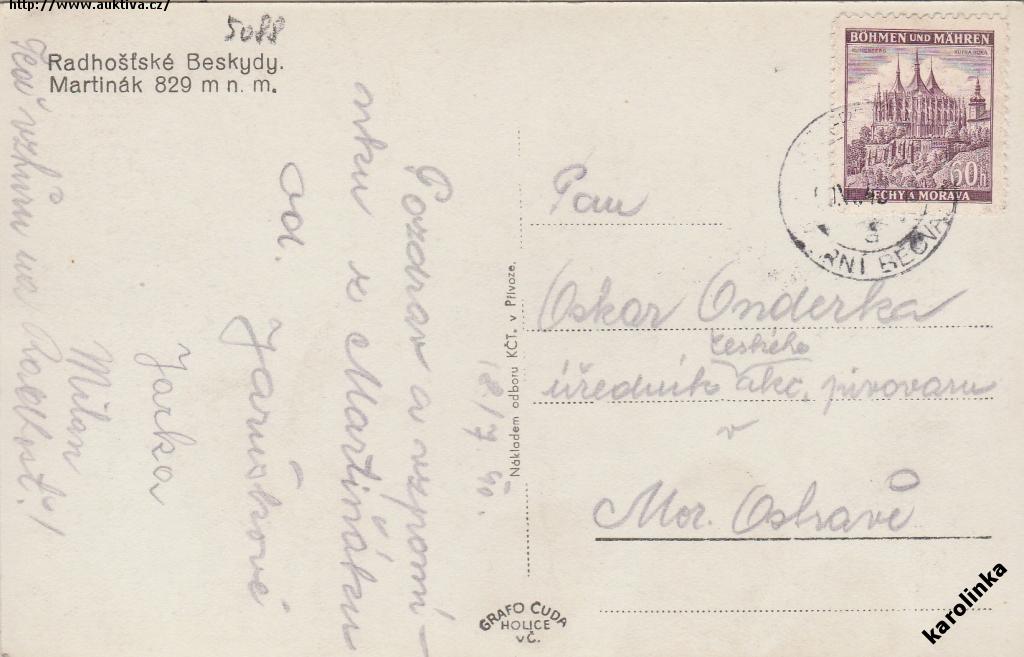 http://www.auktiva.cz/
5088
Radhošťské Beskydy.
Martinák 829 m n. m.
Pozdrav a vzpomí-
nku z Martiňáku
od. Jaruškové
Jarka
Milan
Teď vzhůru na Radhošť!
18/7 40.
Nákladem odboru KČT. v Přívoze.
GRAFO ČUDA
HOLICE
v Č.
BÖHMEN UND MÄHREN
60h
ČECHY A MORAVA
BEČVA
Pan
Oskar Onderka
českého
úředník akc. pivovaru
v
Mor. Ostravě
karolinka